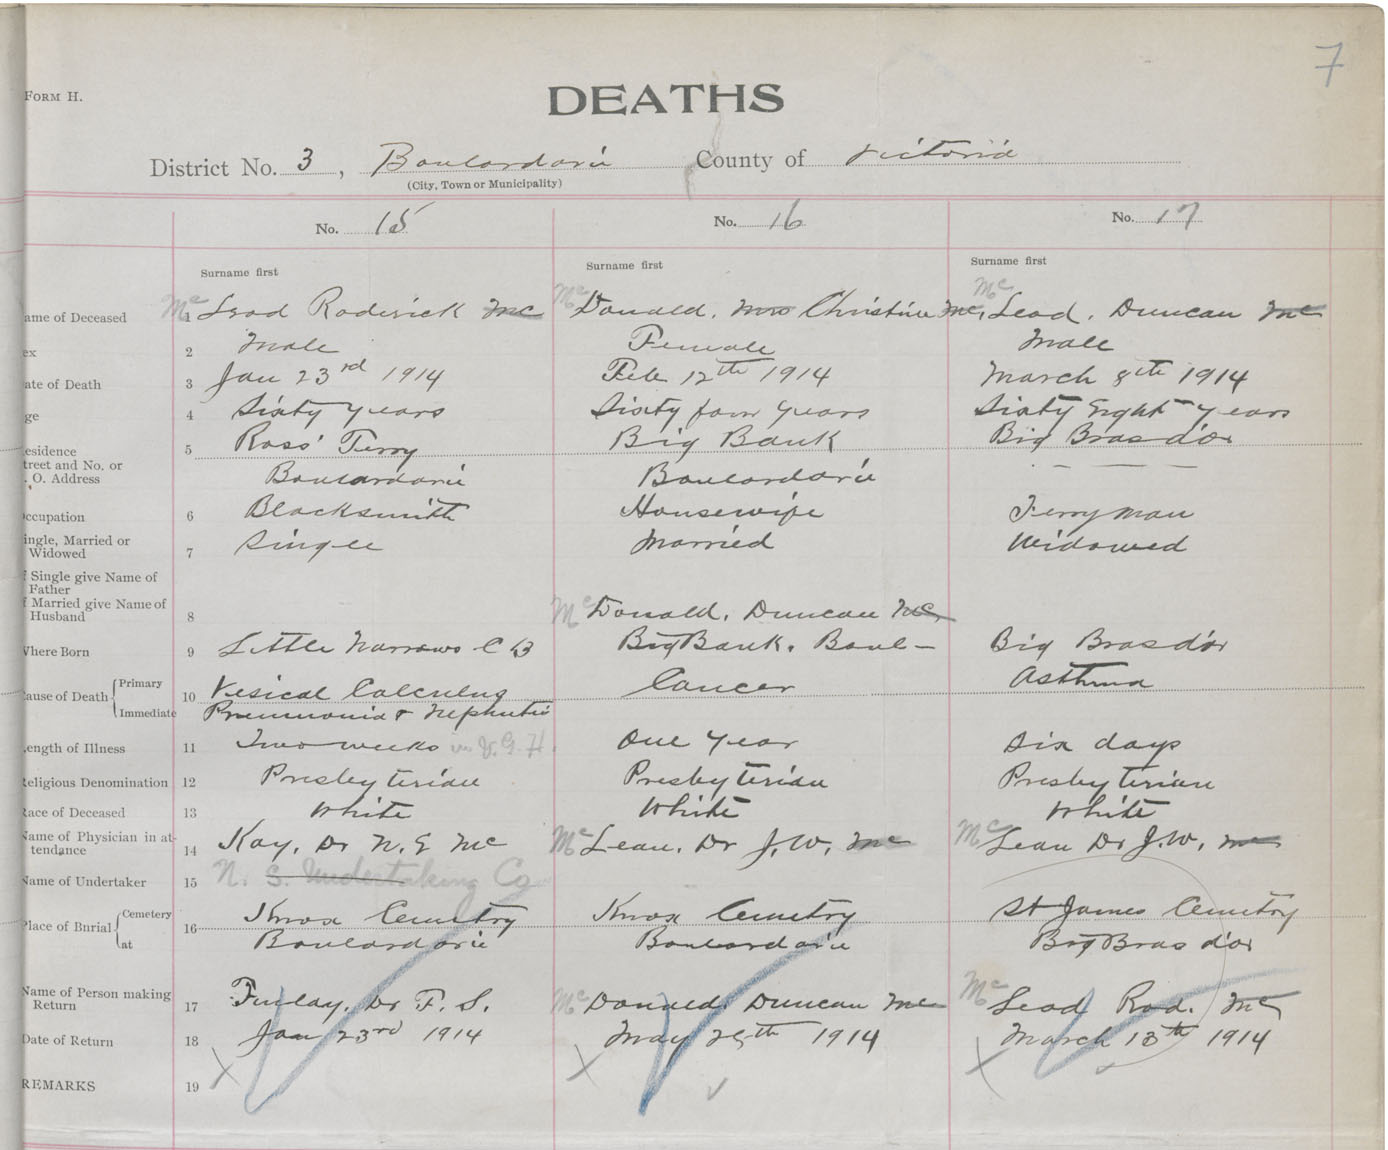 7
FORM H.
DEATHS
District No. 3, Boulardarie County of Victoria
(City, Town or Municipality)
No. 15 No. 16 No. 17
Surname first Surname first Surname first
ame of Deceased 1 Mc Leod Roderick Mc Mc Donald, Mrs Christine Mc, Mc Leod, Duncan Mc
ex 2 Male Female Male
ate of Death 3 Jan 23rd 1914 Feb 12th 1914 March 8th 1914
ge 4 Sixty years Sixty four years Sixty Eight years
esidence 5 Ross' Ferry Big Bank Big Bras d'or
treet and No. or
. O. Address Boulardarie Boulardarie — — —
ccupation 6 Blacksmith Housewife Ferryman
ingle, Married or
Widowed 7 Single Married Widowed
f Single give Name of
Father
f Married give Name of
Husband 8 Mc Donald, Duncan Mc
Where Born 9 Little Narrows C B Big Bank. Boul- Big Bras d'or
ause of Death Primary 10 Vesical Calculus Cancer Asthma
Immediate Pneumonia & Nephritis
ength of Illness 11 Two weeks in V.G.H. One year Six days
eligious Denomination 12 Presbyterian Presbyterian Presbyterian
Race of Deceased 13 White White White
Name of Physician in at-
tendance 14 Kay, Dr N. E Mc Mc Lean, Dr J. W. Mc Mc Lean Dr J. W. Mc
Name of Undertaker 15 N. S. Undertaking Co
Place of Burial Cemetery 16 Knox Cemetry Knox Cemetry St James Cemetry
at Boulardarie Boulardarie Big Bras d'or
Name of Person making
Return 17 Finlay, Dr F. S. Mc Donald, Duncan Mc Mc Leod Rod. Mc
Date of Return 18 Jan 23rd 1914 May 25th 1914 March 13th 1914
REMARKS 19